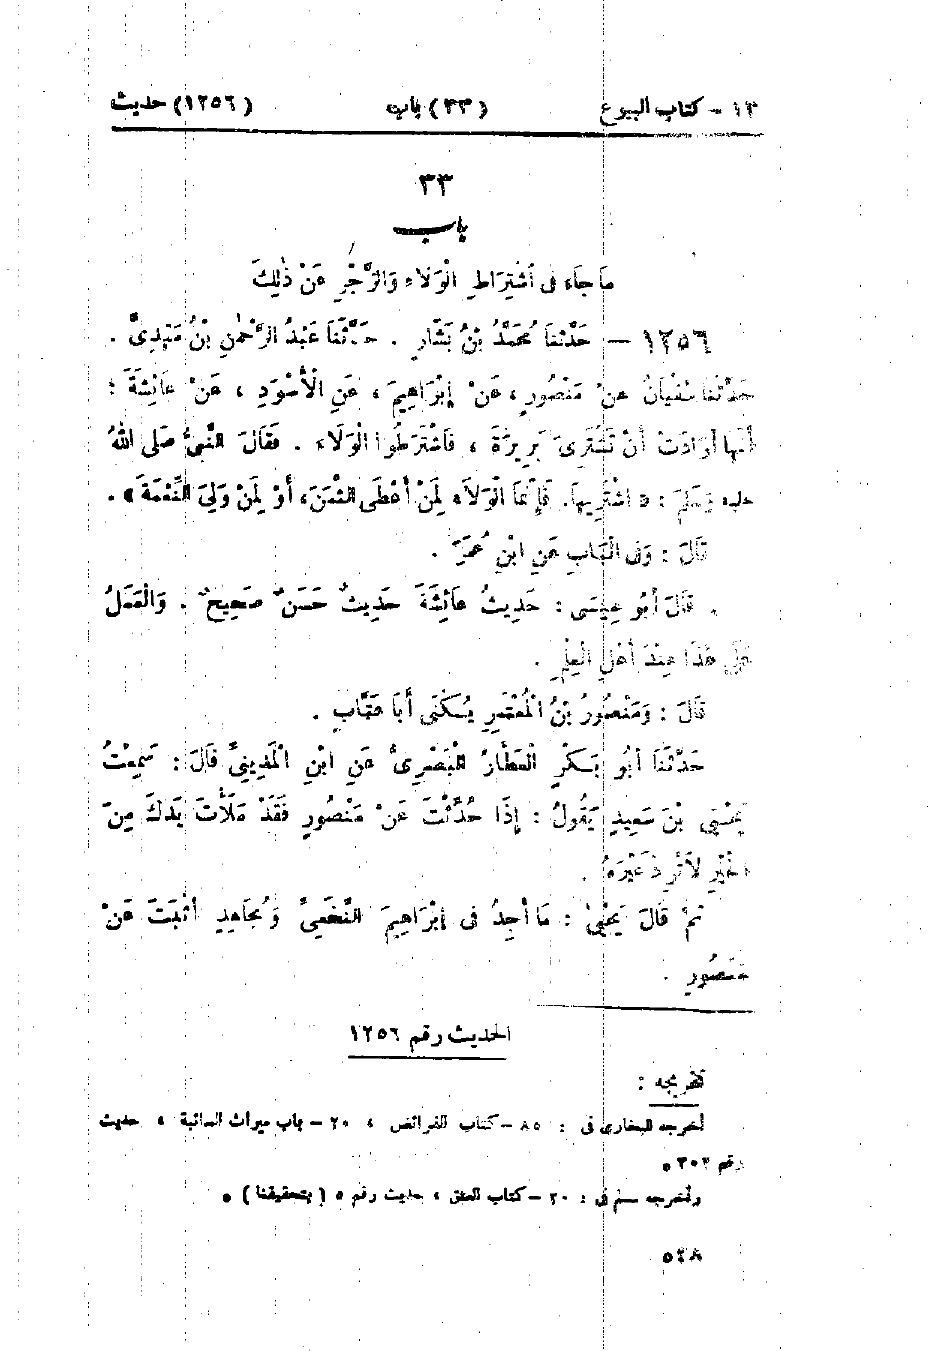 ١٣ - كتاب البيوع (٣٣) باب (١٢٥٦) حديث
٣٣
باب
مَا جَاءَ فِى اشْتِرَاطِ الْوَلَاءِ وَالزَّجْرِ عَنْ ذٰلِكَ
١٢٥٦ — حَدَّثَنَا مُحَمَّدُ بْنُ بَشَّارٍ . حَدَّثَنَا عَبْدُ الرَّحْمٰنِ بْنُ مَهْدِىٍّ .
حَدَّثَنَا سُفْيَانُ عَنْ مَنْصُورٍ ، عَنْ إِبْرَاهِيمَ ، عَنِ الْأَسْوَدِ ، عَنْ عَائِشَةَ ؛
أَنَّهَا أَرَادَتْ أَنْ تَشْتَرِىَ بَرِيرَةَ ، فَاشْتَرَطُوا الْوَلَاءَ . فَقَالَ النَّبِىُّ صَلَّى اللهُ
عليه وَسَلَّمَ : « اشْتَرِيهَا. فَإِنَّمَا الْوَلَاءُ لِمَنْ أَعْطَى الثَّمَنَ، أَوْ لِمَنْ وَلِىَ النِّعْمَةَ » .
قَالَ : وَفِى الْبَابِ عَنِ ابْنِ عُمَرَ .
قَالَ أَبُو عِيسَى : حَدِيثُ عَائِشَةَ حَدِيثٌ حَسَنٌ صَحِيحٌ . وَالْعَمَلُ
عَلَى هَذَا عِنْدَ أَهْلِ الْعِلْمِ .
قَالَ : وَمَنْصُورُ بْنُ الْمُعْتَمِرِ يُكَنَّى أَبَا عَتَّابٍ .
حَدَّثَنَا أَبُو بَكْرٍ الْعَطَّارُ الْبَصْرِىُّ عَنِ ابْنِ الْمَدِينِىِّ قَالَ : سَمِعْتُ
يَحْيَى بْنَ سَعِيدٍ يَقُولُ : إِذَا حُدِّثْتَ عَنْ مَنْصُورٍ فَقَدْ مَلَأْتَ يَدَكَ مِنَ
الْخَيْرِ لَا تُرِدْ غَيْرَهُ .
ثُمَّ قَالَ يَحْيَىٰ : مَا أَجِدُ فِى إِبْرَاهِيمَ النَّخَعِىِّ وَمُجَاهِدٍ أَثْبَتَ عَنْ
مَنْصُورٍ .
الحديث رقم ١٢٥٦
تخريجه :
أخرجه البخارى فى : ٨٥ - كتاب الفرائض ، ٢٠ - باب ميراث السائبة ، حديث
رقم ٣٠٢ •
وأخرجه مسلم فى : ٢٠ - كتاب العتق ، حديث رقم ٥ ( بتحقيقنا ) •
٥٤٨